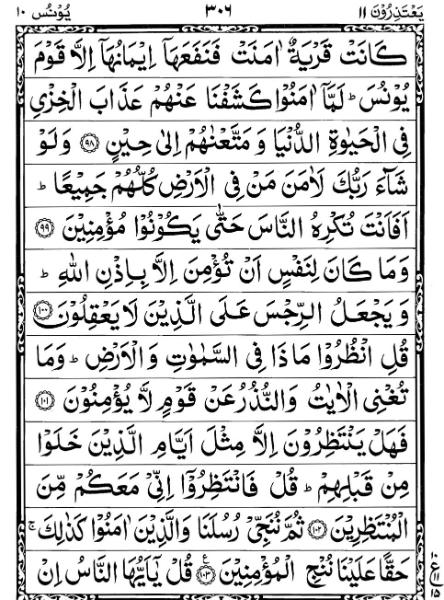 يَعْتَذِرُوْنَ ١١ ٣٠٦ يُوْنُس ١٠
كَانَتْ قَرْيَةٌ اٰمَنَتْ فَنَفَعَهَاۤ اِيْمَانُهَاۤ اِلَّا قَوْمَ
يُوْنُسَ ؕ لَمَّاۤ اٰمَنُوْا كَشَفْنَا عَنْهُمْ عَذَابَ الْخِزْيِ
فِى الْحَيٰوةِ الدُّنْيَا وَ مَتَّعْنٰهُمْ اِلٰى حِيْنٍ ﴿۹۸﴾ وَلَوْ
شَآءَ رَبُّكَ لَاٰمَنَ مَنْ فِى الْاَرْضِ كُلُّهُمْ جَمِيْعًا ؕ
اَفَاَنْتَ تُكْرِهُ النَّاسَ حَتّٰى يَكُوْنُوْا مُؤْمِنِيْنَ ﴿۹۹﴾
وَمَا كَانَ لِنَفْسٍ اَنْ تُؤْمِنَ اِلَّا بِاِذْنِ اللّٰهِ ؕ
وَ يَجْعَلُ الرِّجْسَ عَلَى الَّذِيْنَ لَا يَعْقِلُوْنَ ﴿۱۰۰﴾
قُلِ انْظُرُوْا مَاذَا فِى السَّمٰوٰتِ وَالْاَرْضِ ؕ وَمَا
تُغْنِى الْاٰيٰتُ وَالنُّذُرُ عَنْ قَوْمٍ لَّا يُؤْمِنُوْنَ ﴿۱۰۱﴾
فَهَلْ يَنْتَظِرُوْنَ اِلَّا مِثْلَ اَيَّامِ الَّذِيْنَ خَلَوْا
مِنْ قَبْلِهِمْ ؕ قُلْ فَانْتَظِرُوْۤا اِنِّىْ مَعَكُمْ مِّنَ
الْمُنْتَظِرِيْنَ ﴿۱۰۲﴾ ثُمَّ نُنَجِّىْ رُسُلَنَا وَالَّذِيْنَ اٰمَنُوْا كَذٰلِكَ ۚ
حَقًّا عَلَيْنَا نُنْجِ الْمُؤْمِنِيْنَ ﴿۱۰۳﴾ ع قُلْ يٰۤاَيُّهَا النَّاسُ اِنْ
١٠
ع ١١
١٥